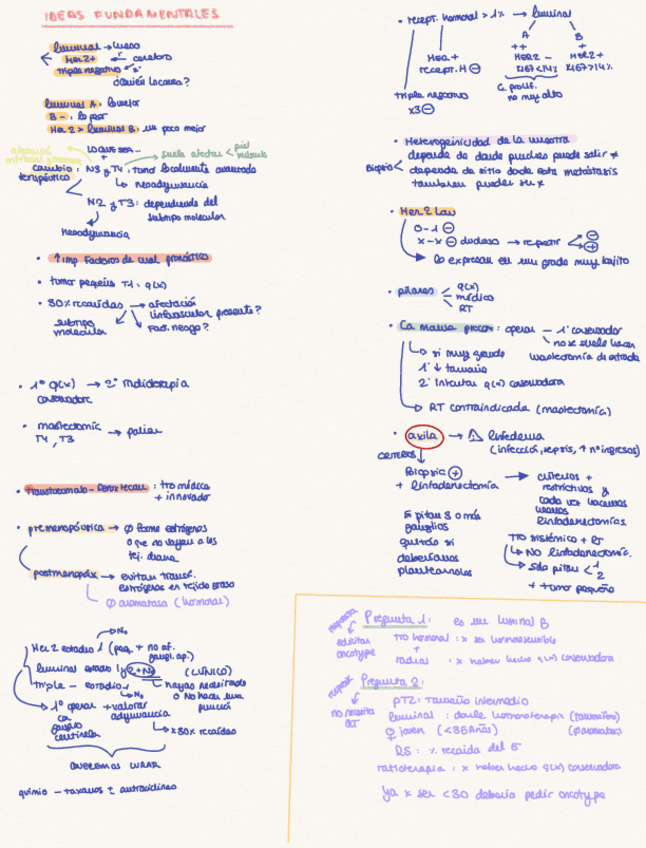 IDEAS FUNDAMENTALES
luminal → hueso
Her2+ → cerebro
triple negativo
¿Quién la causa?
luminal A: la mejor
B -: la peor
Her 2 > luminal B: un poco mejor
LO QUE SER -
+
suele afectar < piel
músculo
cambio : N3 y T4: tumor localmente avanzado
terapéutico
↳ neoadyuvancia
N2 y T3: dependiendo del
subtipo molecular
neoadyuvancia
• ↑ imp Factores de mal pronóstico
• tumor pequeño T1: q(x)
• 30% recaídas → afectación
linfovascular presente?
subtipo
molecular
Fact. riesgo?
• 1º q(x) → 2º radioterapia
conservadora
• mastectomía → paliar
T4, T3
: tto médico
+ innovador
• premenopáusica → ∅ forme estrógenos
o que no vayan a los
tej. diana
postmenopáus → evitar transf.
estrógenos en tejido graso
∅ aromatasa (hormonal)
→ N0
Her 2 estadio 1 (peq. + no af.
gangl. ap.)
luminal estadio 1 y 2 + N0 (CLÍNICO)
triple - estadio 1
↳ N0
→ 1º operar + valorar
adyuvancia
ganglio
centinela
↳ x 30% recaídas
QUEREMOS CURAR
quimio - taxanos ± antraciclinas
• recept. hormonal > 1% → luminal
A B
++ +
HER2 - HER2+
Ki67<14% Ki67>14%
HER+
recept. H ⊖
triple negativo
x3 ⊖
C. prolif.
no muy alto
• Heterogeneidad de la muestra
depende de donde pinches puede salir ≠
Biopsia < depende de sitio donde esta metástasis
tambien puede ser ≠
• Her 2 Low
0-1 ⊖
x-x ⊖ dudoso → repetir < ⊖
⊕
lo expresan en un grado muy bajito
• pilares < q(x)
médico
RT
• Ca mama precoz: operar - 1º conservador
no se suele hacer
mastectomía de entrada
↳ si muy grande
1º ↓ tamaño
2º intentar q(x) conservadora
↳ RT contraindicada (mastectomía)
• axila → ⚠ linfedema
(infección, sepsis, ↑ nº ingresos)
CRITERIOS ↓
Biopsia ⊕
+ linfadenectomía
→ criterios +
restrictivos y
cada vez hacemos
menos
linfadenectomías.
Si pitan 3 o más
ganglios
quizás si
deberíamos
plantearnolos
tto sistémico + RT
↳ NO linfadenectomía.
↳ sólo pitan < 1
2
+ tumor pequeño
respuesta
Pregunta 1: es un luminal B
solicitar
oncotype
tto hormonal : x ser hormonosensible
+
radiot : x haber hecho q(x) conservadora
Pregunta 2:
no necesita
PT2: Tamaño intermedio
luminal : darle hormonoterapia (tamoxifeno)
♀ joven (<35 años)
RS: % recaída del 5
radioterapia : x haber hecho q(x) conservadora
ya x ser <30 debería pedir oncotype